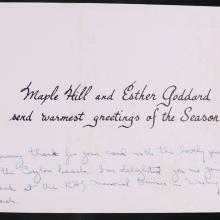 Maple Hill and Esther Goddard
send warmest greetings of the Season
many thanks for your card with the lovely
the Ceylon beach. I'm delighted
at the RHG Memorial Dinner in